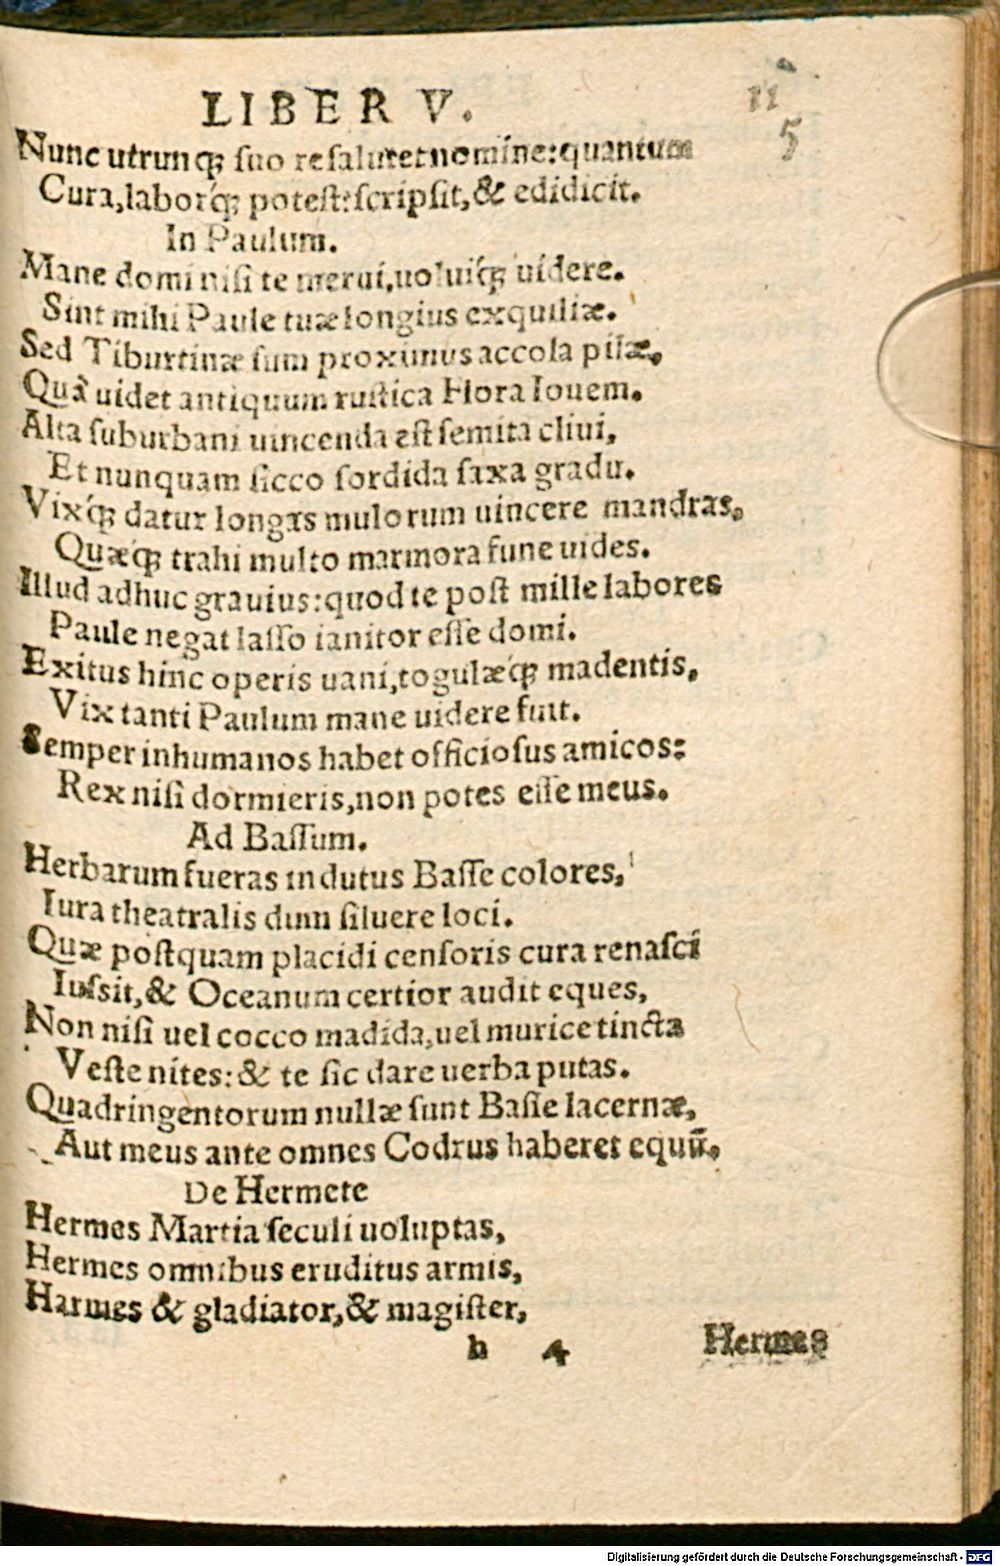 LIBER V.
11
5
Nunc utrunq; suo resalutet nomine: quantum
Cura, laborq́; potest: scripsit, & edidicit.
In Paulum.
Mane domi nisi te merui, uoluiq́; uidere.
Sint mihi Paule tuæ longius exquiliæ.
Sed Tiburtinæ sum proximus accola pilæ,
Quà uidet antiquum rustica Flora Iouem.
Alta suburbani uincenda est semita cliui,
Et nunquam sicco sordida saxa gradu.
Vixq́; datur longas mulorum uincere mandras,
Quæq́; trahi multo marmora fune uides.
Illud adhuc grauius: quod te post mille labores
Paule negat lasso ianitor esse domi.
Exitus hinc operis uani, togulæq́; madentis,
Vix tanti Paulum mane uidere fuit.
Semper inhumanos habet officiosus amicos:
Rex nisi dormieris, non potes esse meus.
Ad Bassum.
Herbarum fueras indutus Basse colores,
Iura theatralis dum siluere loci.
Quæ postquam placidi censoris cura renasci
Iussit, & Oceanum certior audit eques,
Non nisi uel cocco madida, uel murice tincta
Veste nites: & te sic dare uerba putas.
Quadringentorum nullæ sunt Basse lacernæ,
Aut meus ante omnes Codrus haberet equū.
De Hermete
Hermes Martia seculi uoluptas,
Hermes omnibus eruditus armis,
Harmes & gladiator, & magister,
h 4 Hermes
Digitalisierung gefördert durch die Deutsche Forschungsgemeinschaft - DFG